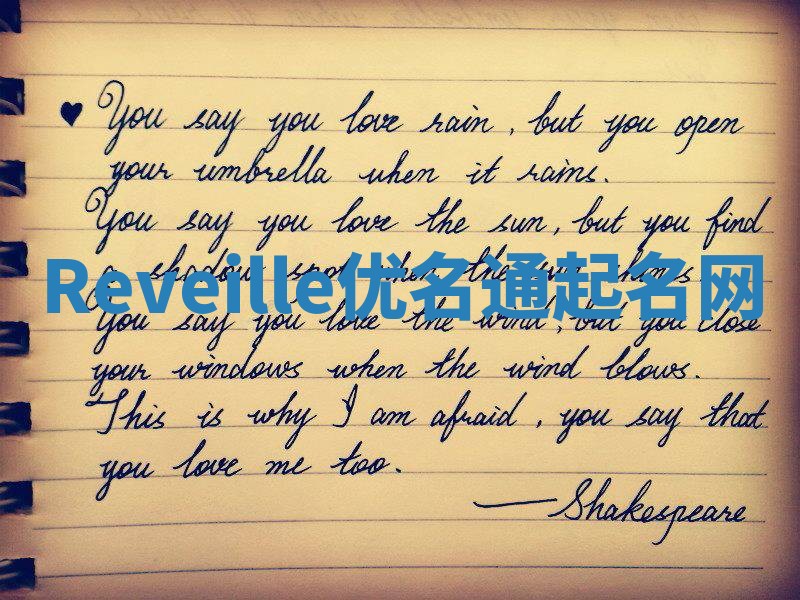 ♥ You say you love rain, but you open
your umbrella when it rains.
You say you love the sun, but you find
a shadow spot when the sun shines
Reveille优名通起名网
You say you love the wind, but you close
your windows when the wind blows.
This is why I am afraid, you say that
you love me too.
— Shakespeare